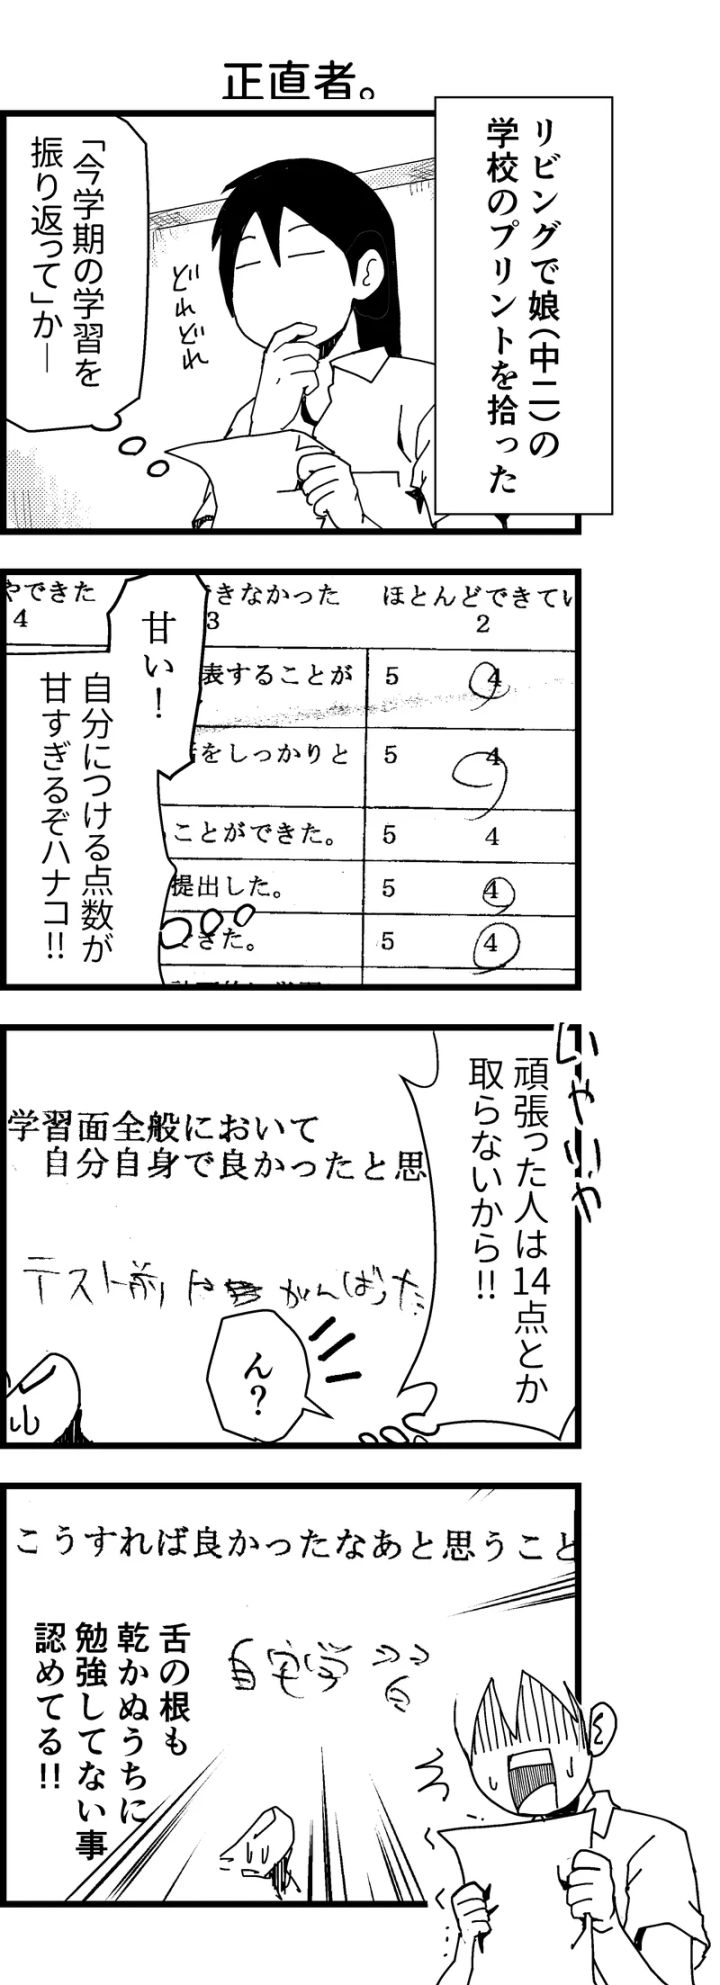 正直者。
リビングで娘(中二)の
学校のプリントを拾った
どれどれ
「今学期の学習を
振り返って」か―
やできた
4
きなかった
3
ほとんどできてい
2
表することが 5 4
をしっかりと 5 4
ことができた。 5 4
提出した。 5 4
できた。 5 4
甘い!
自分につける点数が
甘すぎるぞハナコ!!
いやいや
頑張った人は14点とか
取らないから!!
学習面全般において
自分自身で良かったと思
テスト前
がんばった
ん?
こうすれば良かったなあと思うこと
自宅学習
舌の根も
乾かぬうちに
勉強してない事
認めてる!!